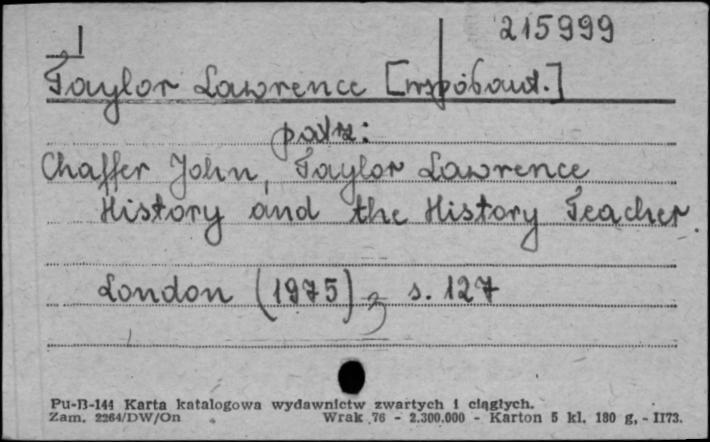 215999
Taylor Lawrence [współaut.]
patrz:
Chaffer John, Taylor Lawrence
History and the History Teacher.
London (1975) s. 127
Pu-B-144 Karta katalogowa wydawnictw zwartych i ciągłych.
Zam. 2264/DW/On Wrak 76 - 2.300.000 - Karton 5 kl. 180 g, - II73.